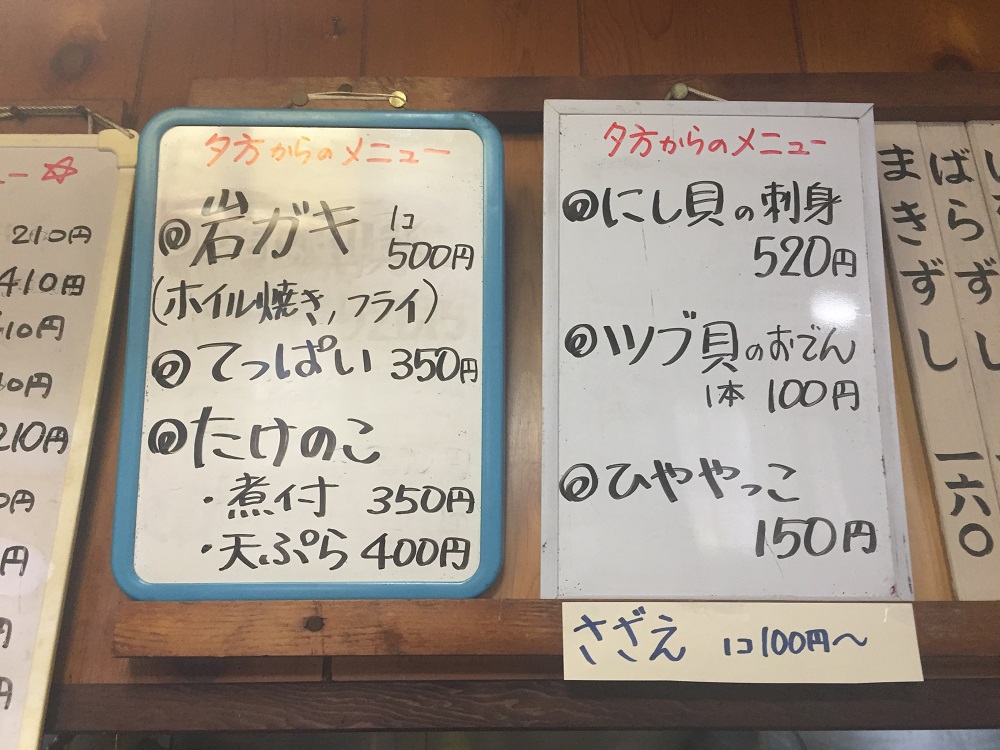 210円
410円
210円
夕方からのメニュー
岩ガキ 1コ 500円
(ホイル焼き,フライ)
てっぱい 350円
たけのこ
・煮付 350円
・天ぷら 400円
夕方からのメニュー
にし貝の刺身
520円
ツブ貝のおでん
1本 100円
ひややっこ
150円
さざえ 1コ100円〜
ばらずし
まきずし 一六〇